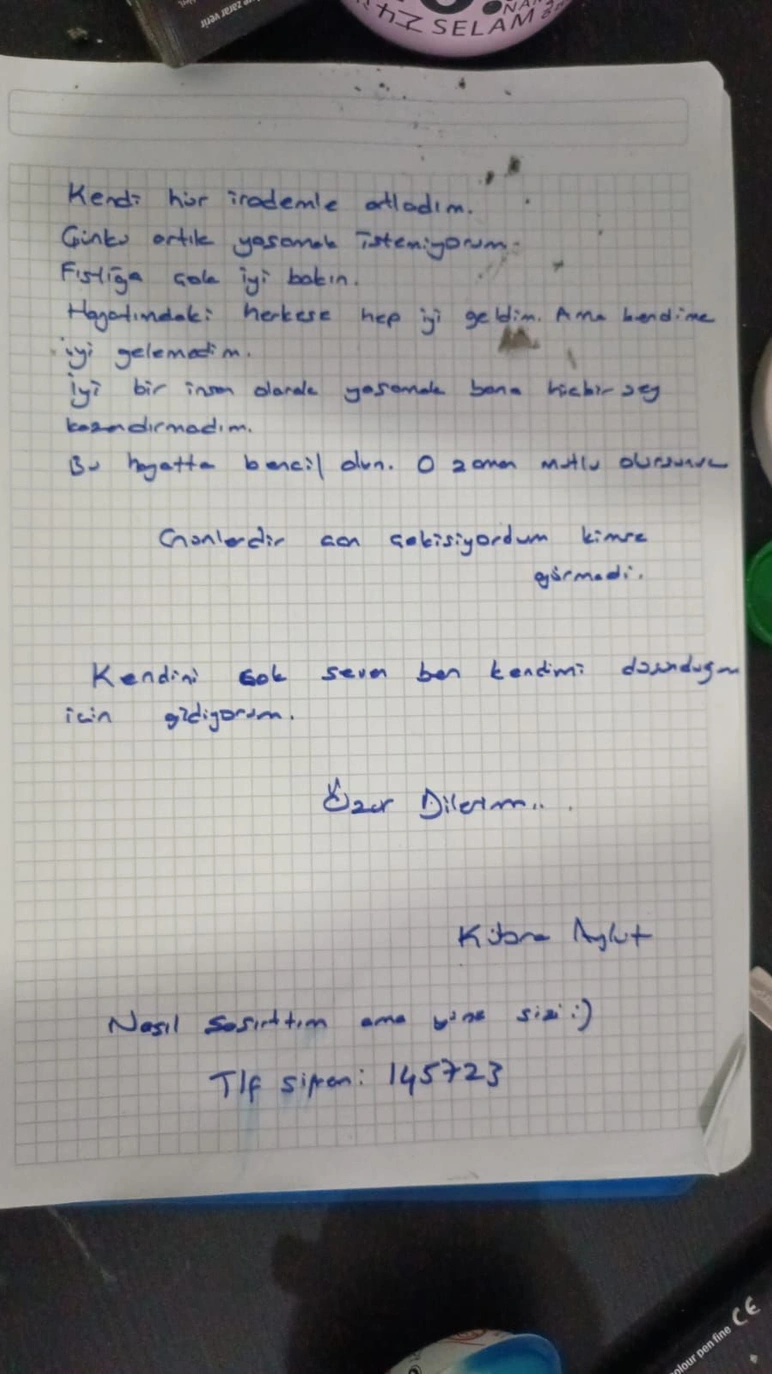 zarar verir
SELAM
Kendi hür irademle atladım.
Çünkü artık yaşamak istemiyorum.
Fıstığa çok iyi bakın.
Hayatımdaki herkese hep iyi geldim. Ama kendime
iyi gelemedim.
İyi bir insan olarak yaşamak bana hiçbir şey
kazandırmadım.
Bu hayatta bencil olun. O zaman mutlu olursunuz
Günlerdir can çekişiyordum kimse
görmedi.
Kendini çok seven ben kendimi
için gidiyorum.
Özür Dilerim...
Kübra
Nasıl şaşırttım ama yine sizi :)
Tlf şifrem: 145723
colour pen fine CE